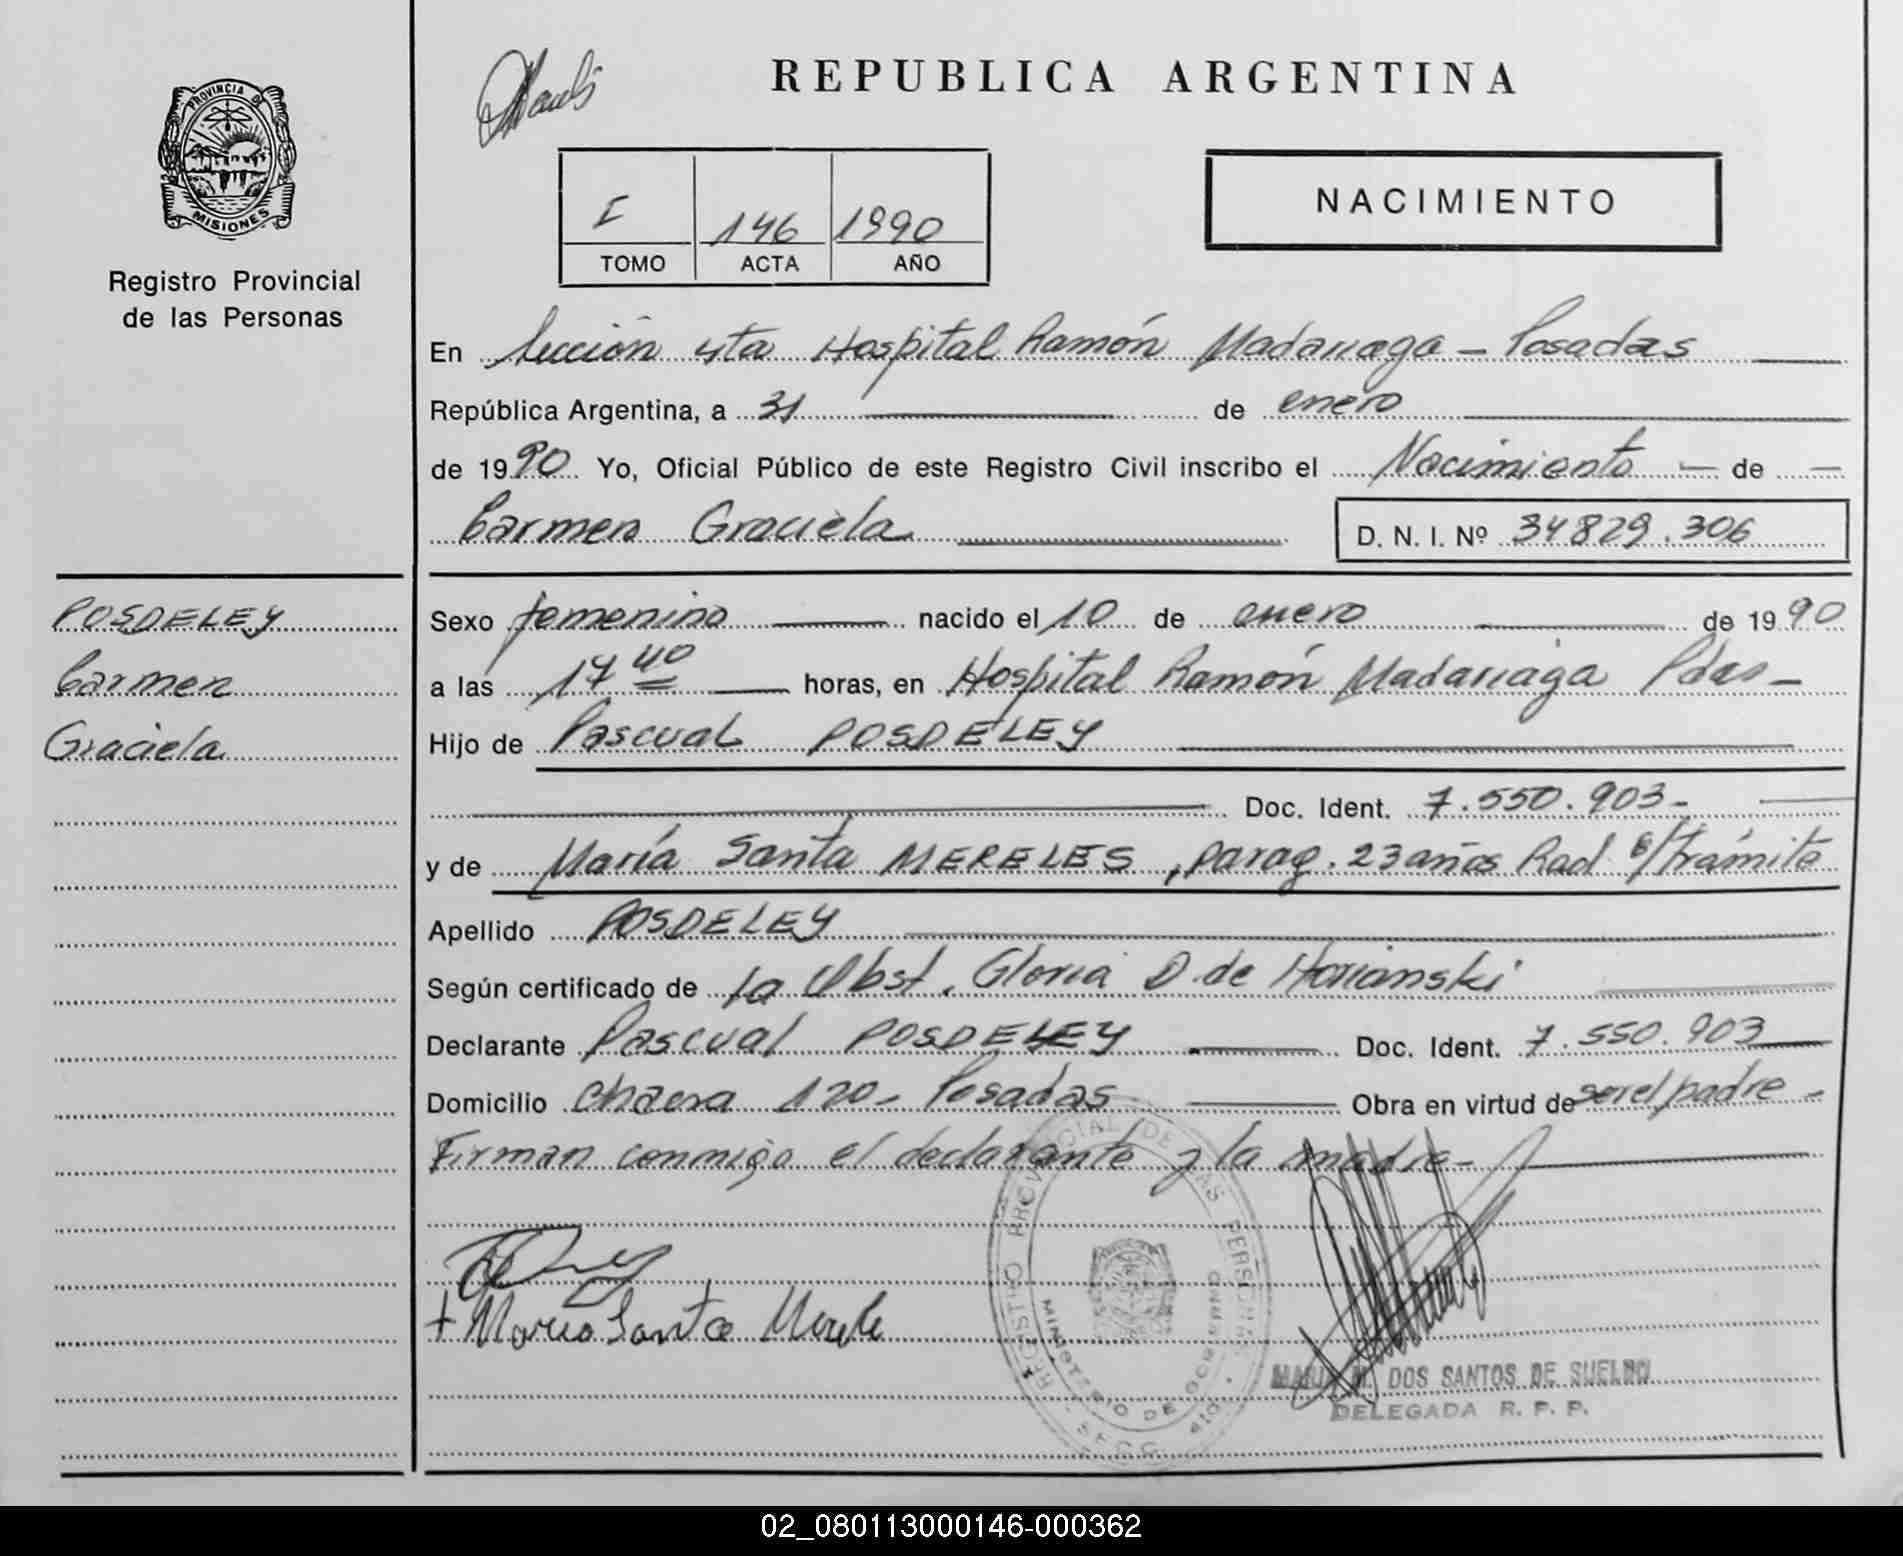 REPUBLICA ARGENTINA
PROVINCIA DE
MISIONES
Registro Provincial
de las Personas
I 146 1990
TOMO ACTA AÑO
NACIMIENTO
En Sección 4ta Hospital Ramón Madariaga - Posadas
República Argentina, a 31 de enero
de 1990 Yo, Oficial Público de este Registro Civil inscribo el Nacimiento de
Carmen Graciela D. N. I. Nº 34829.306
POSDELEY
Carmen
Graciela
Sexo femenino nacido el 10 de enero de 1990
a las 17 40 horas, en Hospital Ramón Madariaga Pdas -
Hijo de Pascual POSDELEY
Doc. Ident. 7.550.903-
y de María Santa MERELES, parag. 23 años Rad. e/trámite
Apellido POSDELEY
Según certificado de la Obst. Gloria D. de Horianski
Declarante Pascual POSDELEY Doc. Ident. 7.550.903
Domicilio chacra 120- Posadas Obra en virtud de ser el padre -
Firman conmigo el declarante y la madre-
+ Maria Santa Merele
REGISTRO PROVINCIAL DE LAS PERSONAS
MINISTERIO DE GOBIERNO
DOS SANTOS DE SUELDO
DELEGADA R. P. P.
02_080113000146-000362